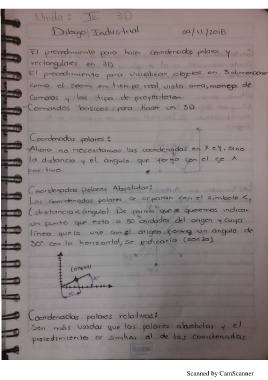 Unidad: IV 3D
Dibujo Industrial 09/11/2018
El procedimiento para hacer coordenadas polares y
rectangulares en 3D.
El procedimiento para visualizar objetos en 3 dimensiones
como el zoom en tiempo real, vista aérea, manejo de
cámaras y los tipos de proyección
Comandos básicos para hacer un 3D.
Coordenadas polares:
Ahora no necesitamos las coordenadas en x e y, sino
la distancia y el ángulo que forma con el eje x
positivo.
Coordenadas Polares Absolutas:
Las coordenadas polares se separan con el símbolo <,
(distancia<ángulo). De manera que si queremos indicar
un punto que está a 20 unidades del origen y cuya
línea que la une con el origen forma un ángulo de
30° con la horizontal, se indicaría (20<30)
Coordenadas polares relativas:
Son más usadas que las polares absolutas y el
procedimiento es similar al de las coordenadas
Scanned by CamScanner